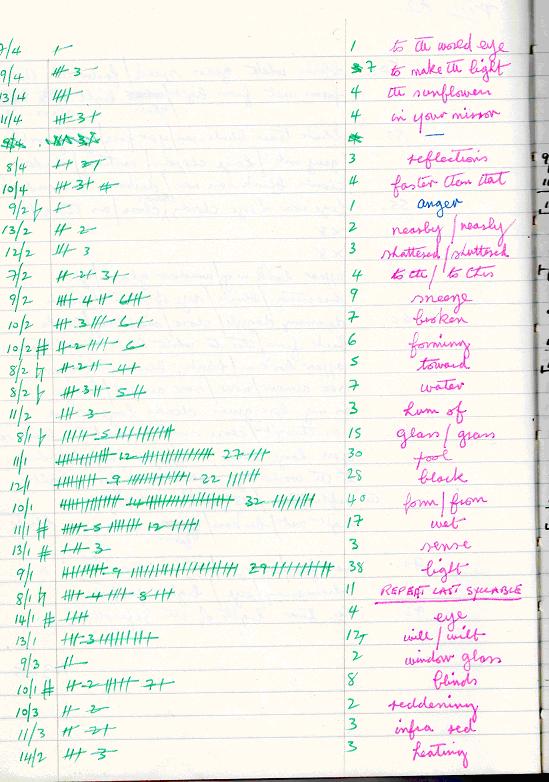 7/4 1 to the world eye
9/4 3 7 to make the light
13/4 4 the sunflowers
11/4 3 4 in your mirror
9/4
8/4 3 reflections
10/4 3 4 4 faster than that
9/2 1 anger
13/2 2 2 nearby / nearly
12/2 3 3 shattered / shuttered
7/2 2 3 4 to the / to this
9/2 4 6 9 sneeze
10/2 3 6 7 broken
10/2 # 2 6 6 forming
8/2 2 4 5 toward
8/2 3 5 7 water
11/2 3 3 hum of
8/1 5 15 glass / grass
11/1 12 27 30 pool
12/1 9 22 28 black
10/1 14 32 40 form / from
11/1 # 5 12 17 wet
13/1 # 3 3 sense
9/1 9 29 38 light
8/1 4 8 11 REPEAT LAST SYLLABLE
14/1 # 4 eye
13/1 3 12 will / wilt
9/3 2 window glass
10/1 # 2 7 8 blinds
10/3 2 2 reddening
11/3 2 3 infra red
14/2 3 3 heating